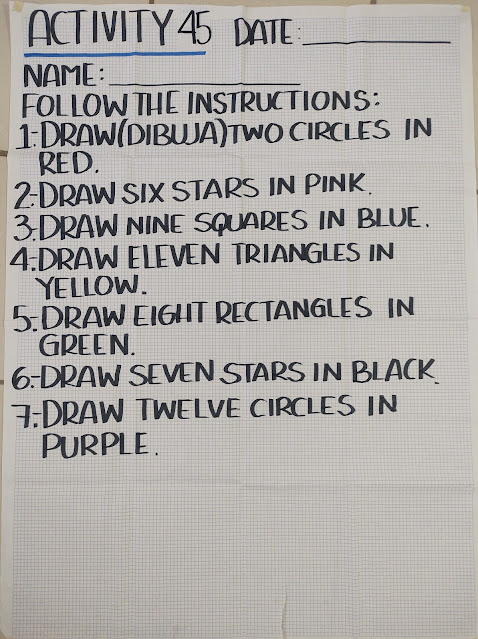 ACTIVITY 45 DATE:____________
NAME:________________
FOLLOW THE INSTRUCTIONS:
1-DRAW(DIBUJA)TWO CIRCLES IN
RED.
2-DRAW SIX STARS IN PINK.
3-DRAW NINE SQUARES IN BLUE.
4-DRAW ELEVEN TRIANGLES IN
YELLOW.
5-DRAW EIGHT RECTANGLES IN
GREEN.
6-DRAW SEVEN STARS IN BLACK.
7-DRAW TWELVE CIRCLES IN
PURPLE.